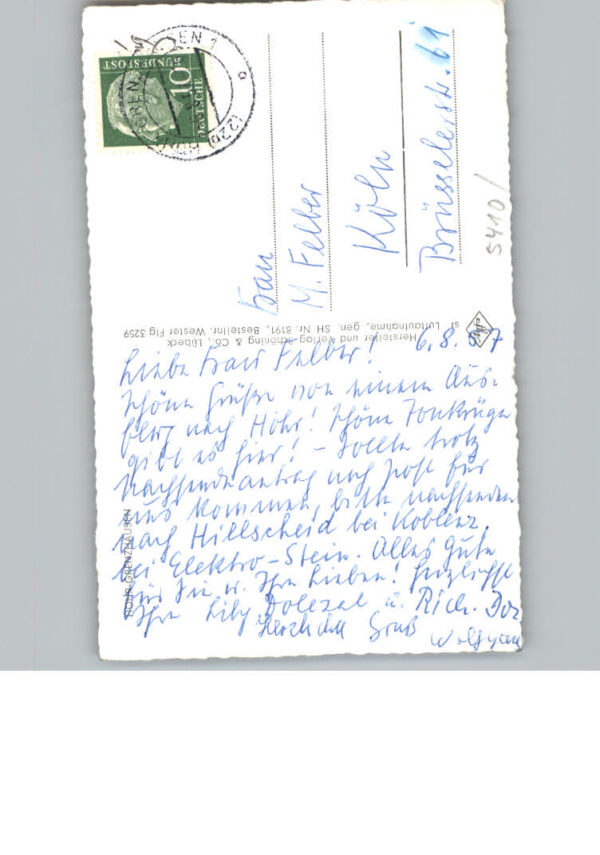 DEUTSCHE
BUNDESPOST
10
(22b)
Frau
M. Felber
Köln
Brüsselerstr. 69
5410/
Hersteller und Verlag Schöning & Co., Lübeck
Luftaufnahme, gen. SH Nr. 8191, Bestellnr. Wester Flg 3259
HÖHR-GRENZHAUSEN
6.8.57
Liebe Frau Felber!
Schöne Grüße von einem Aus-
flug nach Höhr! Schöne Tonkrüge
gibt es hier! – Sollte trotz
Nachsendeantrag noch Post für
uns kommen, bitte nachsenden
nach Hillscheid bei Koblenz,
bei Elektro-Stein. Alles Gute
für Sie u. Ihre Lieben! Herzlichst
Ihre Lily Dolezal u. Rich. Dol
Herzlichen Gruß
Wolfgang